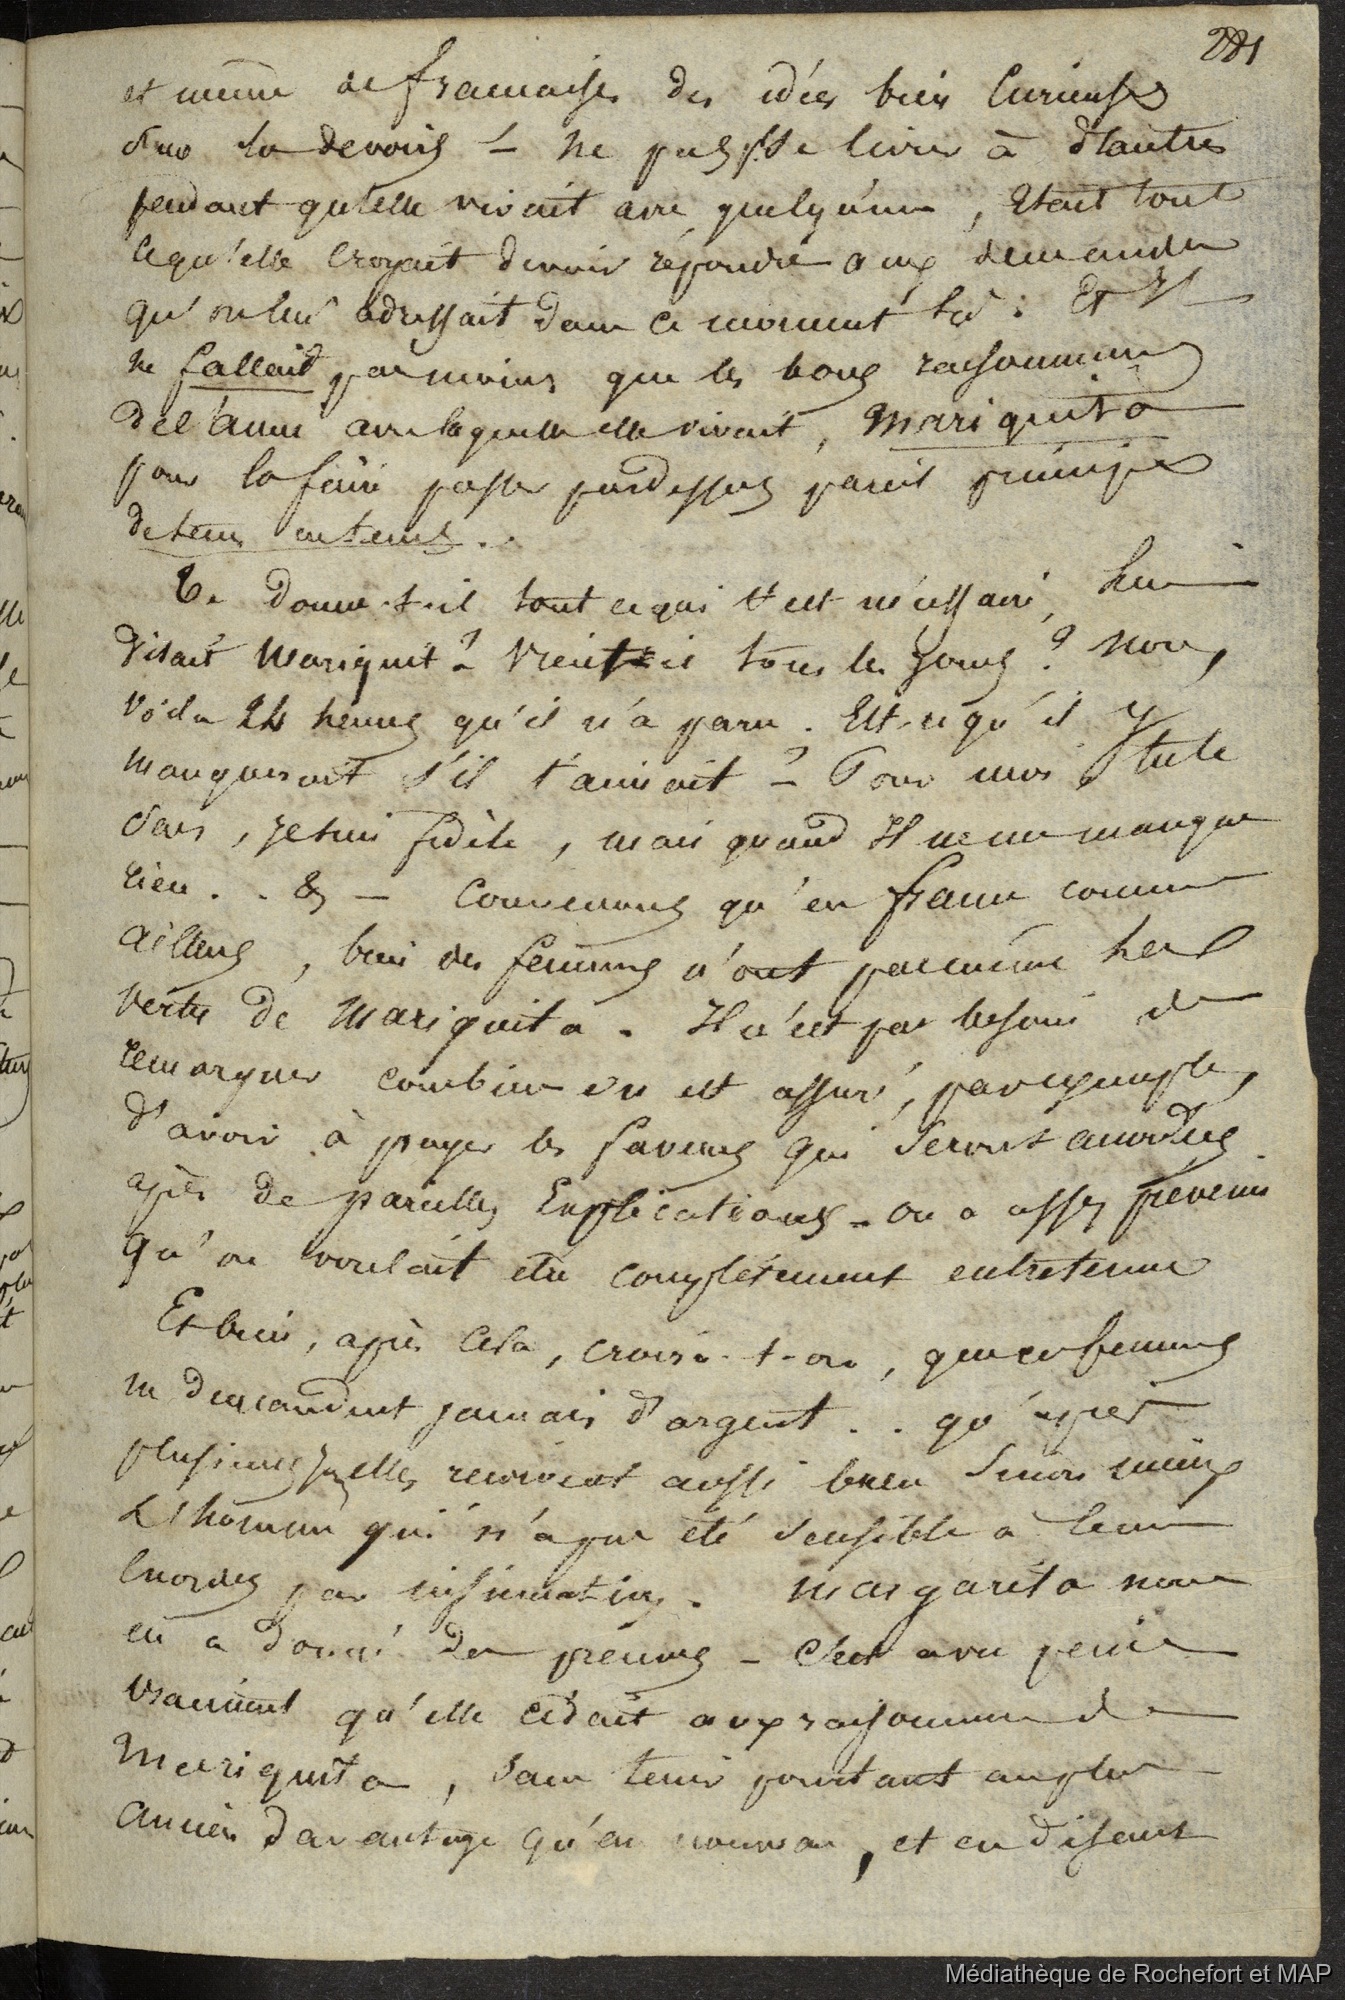 281
et même de françaises des idées bien curieuses
sur les devoirs _ ne pas se livrer à d'autres
pendant qu'elle vivait avec quelqu'un, etait tout
ce qu'elle croyait devoir répondre aux demandes
qu'on lui adressait dans ce moment là : Et Il
ne fallait pas moins que les bons raisonnemens
de l'amie avec laquelle elle vivait, Mariquita
pour la faire passer pardessus pareil principe
de tems en tems..
Te donne-t-il tout ce qui t'est nécessaire, lui
disait Mariquita? Vient-il tous les jours? Non,
voila 24 heures qu'il n'a paru. Est-ce qu'il y
manquerait s'il t'aimait? _ Pour moi, tu le
sais, je suis fidèle, mais quand Il ne me manque
rien.. & _ Convenons qu'en france comme
ailleurs, bien des femmes n'ont pas même la
vertu de Mariquita. Il n'est pas besoin de
remarquer combien on est assuré, par exemple,
d'avoir à payer les faveurs qui seront accordées
après de pareilles Explications _ on a assez prévenu
qu'on voulait etre complétement entretenue
Et bien, après cela, croira-t-on, que ces femmes
ne demandent jamais d'argent.. qu'après
plusieurs jours elles reçoivent aussi bien sinon mieux
L'homme qui n'a pas été sensible a leurs
exordes par insinuation. Margarita nous
en a donné des preuves _ C'est avec peine
vraiment qu'elle cédait aux raisonnemens de
Mariquita, sans tenir pourtant au plus
ancien davantage qu'au nouveau, et en disant
Médiathèque de Rochefort et MAP